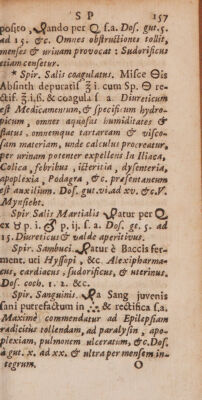 S P 157
posito, Pando per Q f.a. Dos. gut. 5.
ad 15. &c. Omnes obstructiones tollit,
menses & urinam provocat: Sudorificus
etiam censetur.
* Spir. Salis coagulatus, Misce ⊖is
Absinth depurati ℥i. cum Sp. ⊖ re-
ctif. ℥i.ß. & coagul: f a. Diureticum
est Medicamentum, & specificum hydro-
picum, omnes aquosas humiditates &
flatus, omnemque tartaream & visco-
sam materiam, unde calculus procreatur,
per urinam potenter expellens In Iliaca,
Colica, febribus, icteritia, dysenteria,
apoplexia, Podagra, &c. præsentaneum
est auxilium. Dos. gut. vi ad xv. &c. V.
Mynsicht.
Spir. Salis Martialis Patur per
ex ♉ p. i. ♂ p. ij. f. a. Dos. ge. 5. ad
15. Diureticus & valde aperitivus.
Spir. Sambuci. Patur è Baccis fer-
ment. uti Hyssopi, &c. Alexipharma-
cus, cardiacus, sudorificus, & uterinus.
Dos. coch. 1. 2. &c.
Spir. Sanguinis. Pa Sang juvenis
sani putrefactum in & rectifica f.a.
Maximè commendatur ad Epilepsiam
radicitus tollendam, ad paralysin, apo-
plexiam, pulmonem ulceratum, &c. Dos.
à gut. x. ad xx. & ultra per mensem in-
tegrum. O